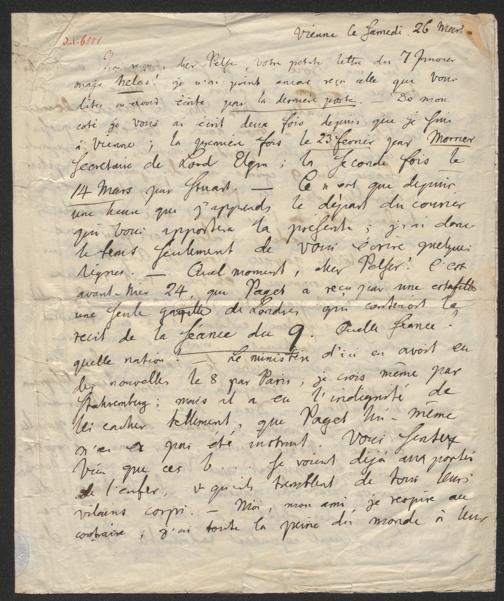 Vienne le Samedi 26 Mars
cher Pelser, votre petite lettre du 7 Janvier
mais helas! je n'ai point encore reçu celle que vous
dites m'avoir écrite par la derniere poste. — De mon
coté je vous ai écrit deux fois depuis que je suis
à Vienne; la premiere fois le 23 fevrier par Morrier
Secretaire de Lord Elgin; la seconde fois le
14 Mars par Stuart. — Ce n'est que depuis
une heure que j'apprends le départ du courier
qui vous apportera la présente; j'ai donc
le tems seulement de vous écrire quelques
lignes. — Quel moment, cher Pelser! C'est
avant-hier 24, que Paget a reçu par une estafette
une seule gazette de Londres qui contenoit le
recit de la séance du 9. Quelle séance!
quelle nation! — Le ministère d'ici en avoit eu
les nouvelles le 8 par Paris, je crois même par
Stahremberg; mais il a eu l'indignité de
les cacher tellement, que Paget lui-même
n'en a pas été instruit. Vous sentez
bien que ces b.... se voient déjà aux portes
de l'enfer, & qu'ils tremblent de tous leurs
vilains corps. — Moi, mon ami, je respire au
contraire; j'ai toute la peine du monde à leur